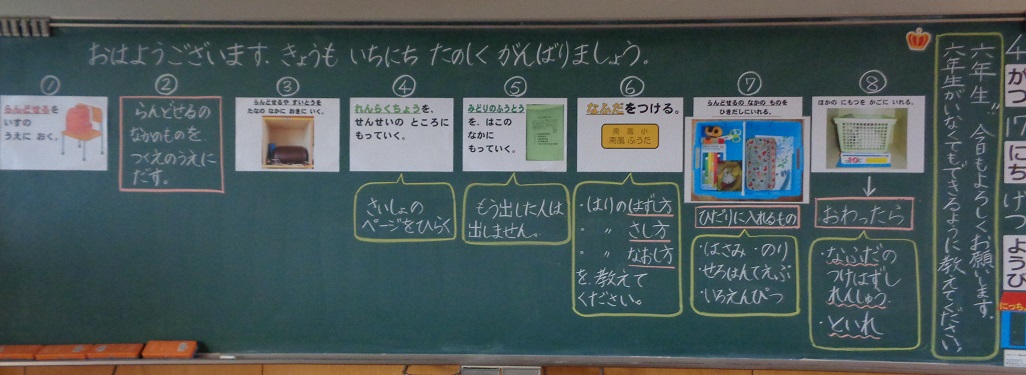 おはようございます.きょうも いちにち たのしく がんばりましょう。
①
らんどせるを
いすの
うえに おく。
②
らんどせるの
なかのものを
つくえのうえに
だす。
③
らんどせるや すいとうを
たなの なかに おきに いく。
④
れんらくちょうを、
せんせいの ところに
もっていく。
さいしょの
ページをひらく
⑤
みどりのふうとう
を、はこの
なかに
もっていく。
もう出した人は
出しません。
⑥
なふだをつける。
南風小
南風 ふうた
・はりのはずし方
・ 〃 さし方
・ 〃 なおし方
を教えて
ください。
⑦
らんどせるの なかの ものを
ひきだしにいれる。
ひだりに入れるもの
・はさみ ・のり
・せろはんてえぷ
・いろえんぴつ
⑧
ほかの にもつを かごに いれる。
↓
おわったら
・なふだの
つけはずし
れんしゅう
・といれ
六年生〃 今日もよろしくお願いします.
六年生がいなくてもできるように教えてください
4がつ17にちげつようび
にっち